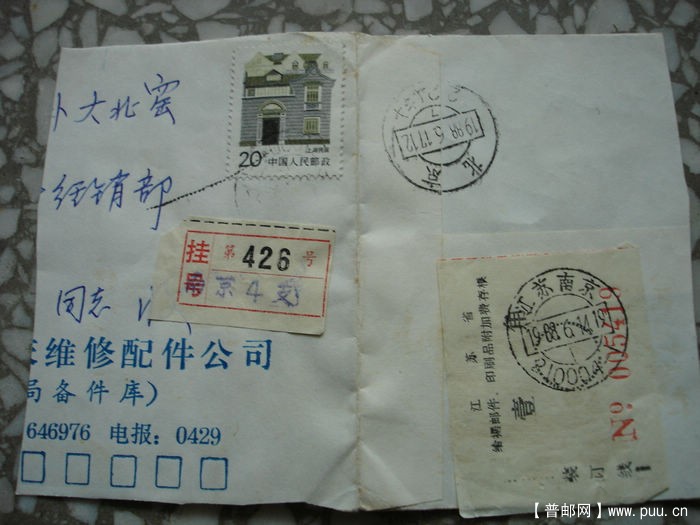 卜大北窑
经销部
同志
上海民居
20 中国人民邮政
挂 第 426 号
号 京4支
维修配件公司
局备件库)
646976 电报: 0429
1988.6.17.12
北京
江苏省
给据邮件、印刷品附加费存根
壹
No 005419
装订线
【普邮网】www.puu.cn